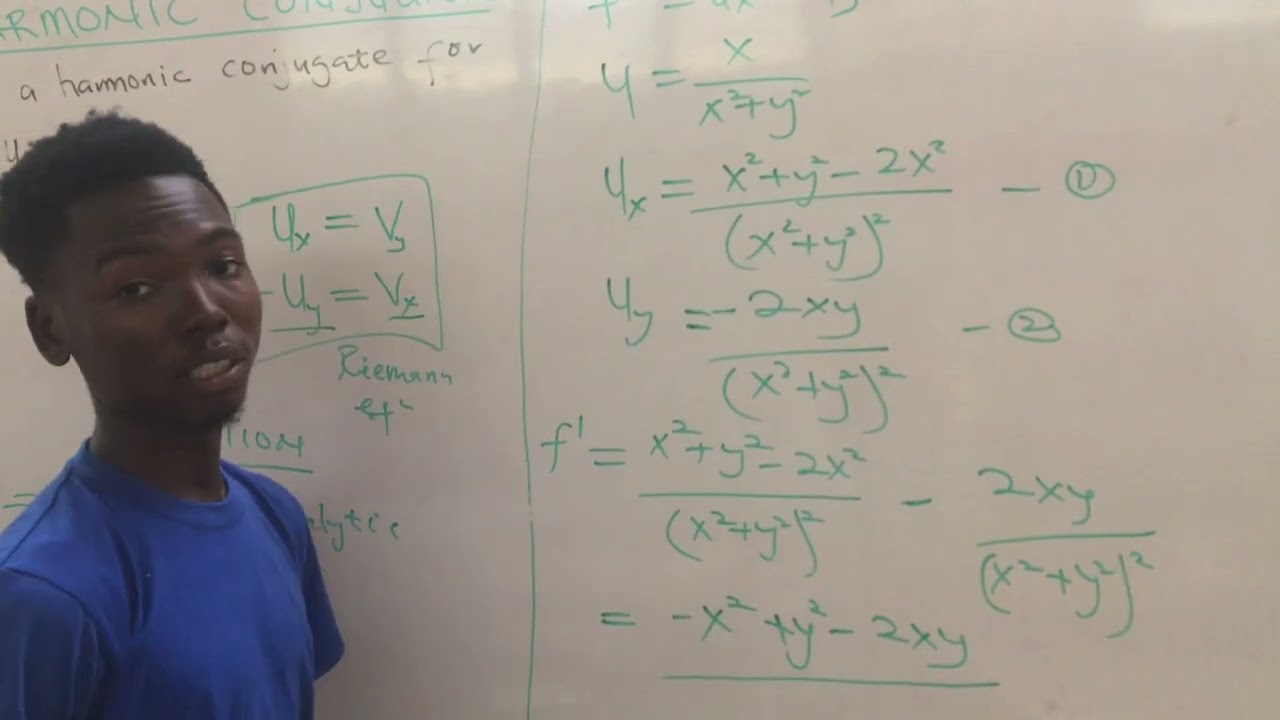 HARMONIC
a harmonic conjugate for
Ux = Vy
-Uy = Vx
Riemann
U = x / x²+y²
Ux = x²+y²-2x² / (x²+y²)² - ①
Uy = -2xy / (x²+y²)² - ②
f' = x²+y²-2x² / (x²+y²)² - 2xy / (x²+y²)²
= -x²+y²-2xy